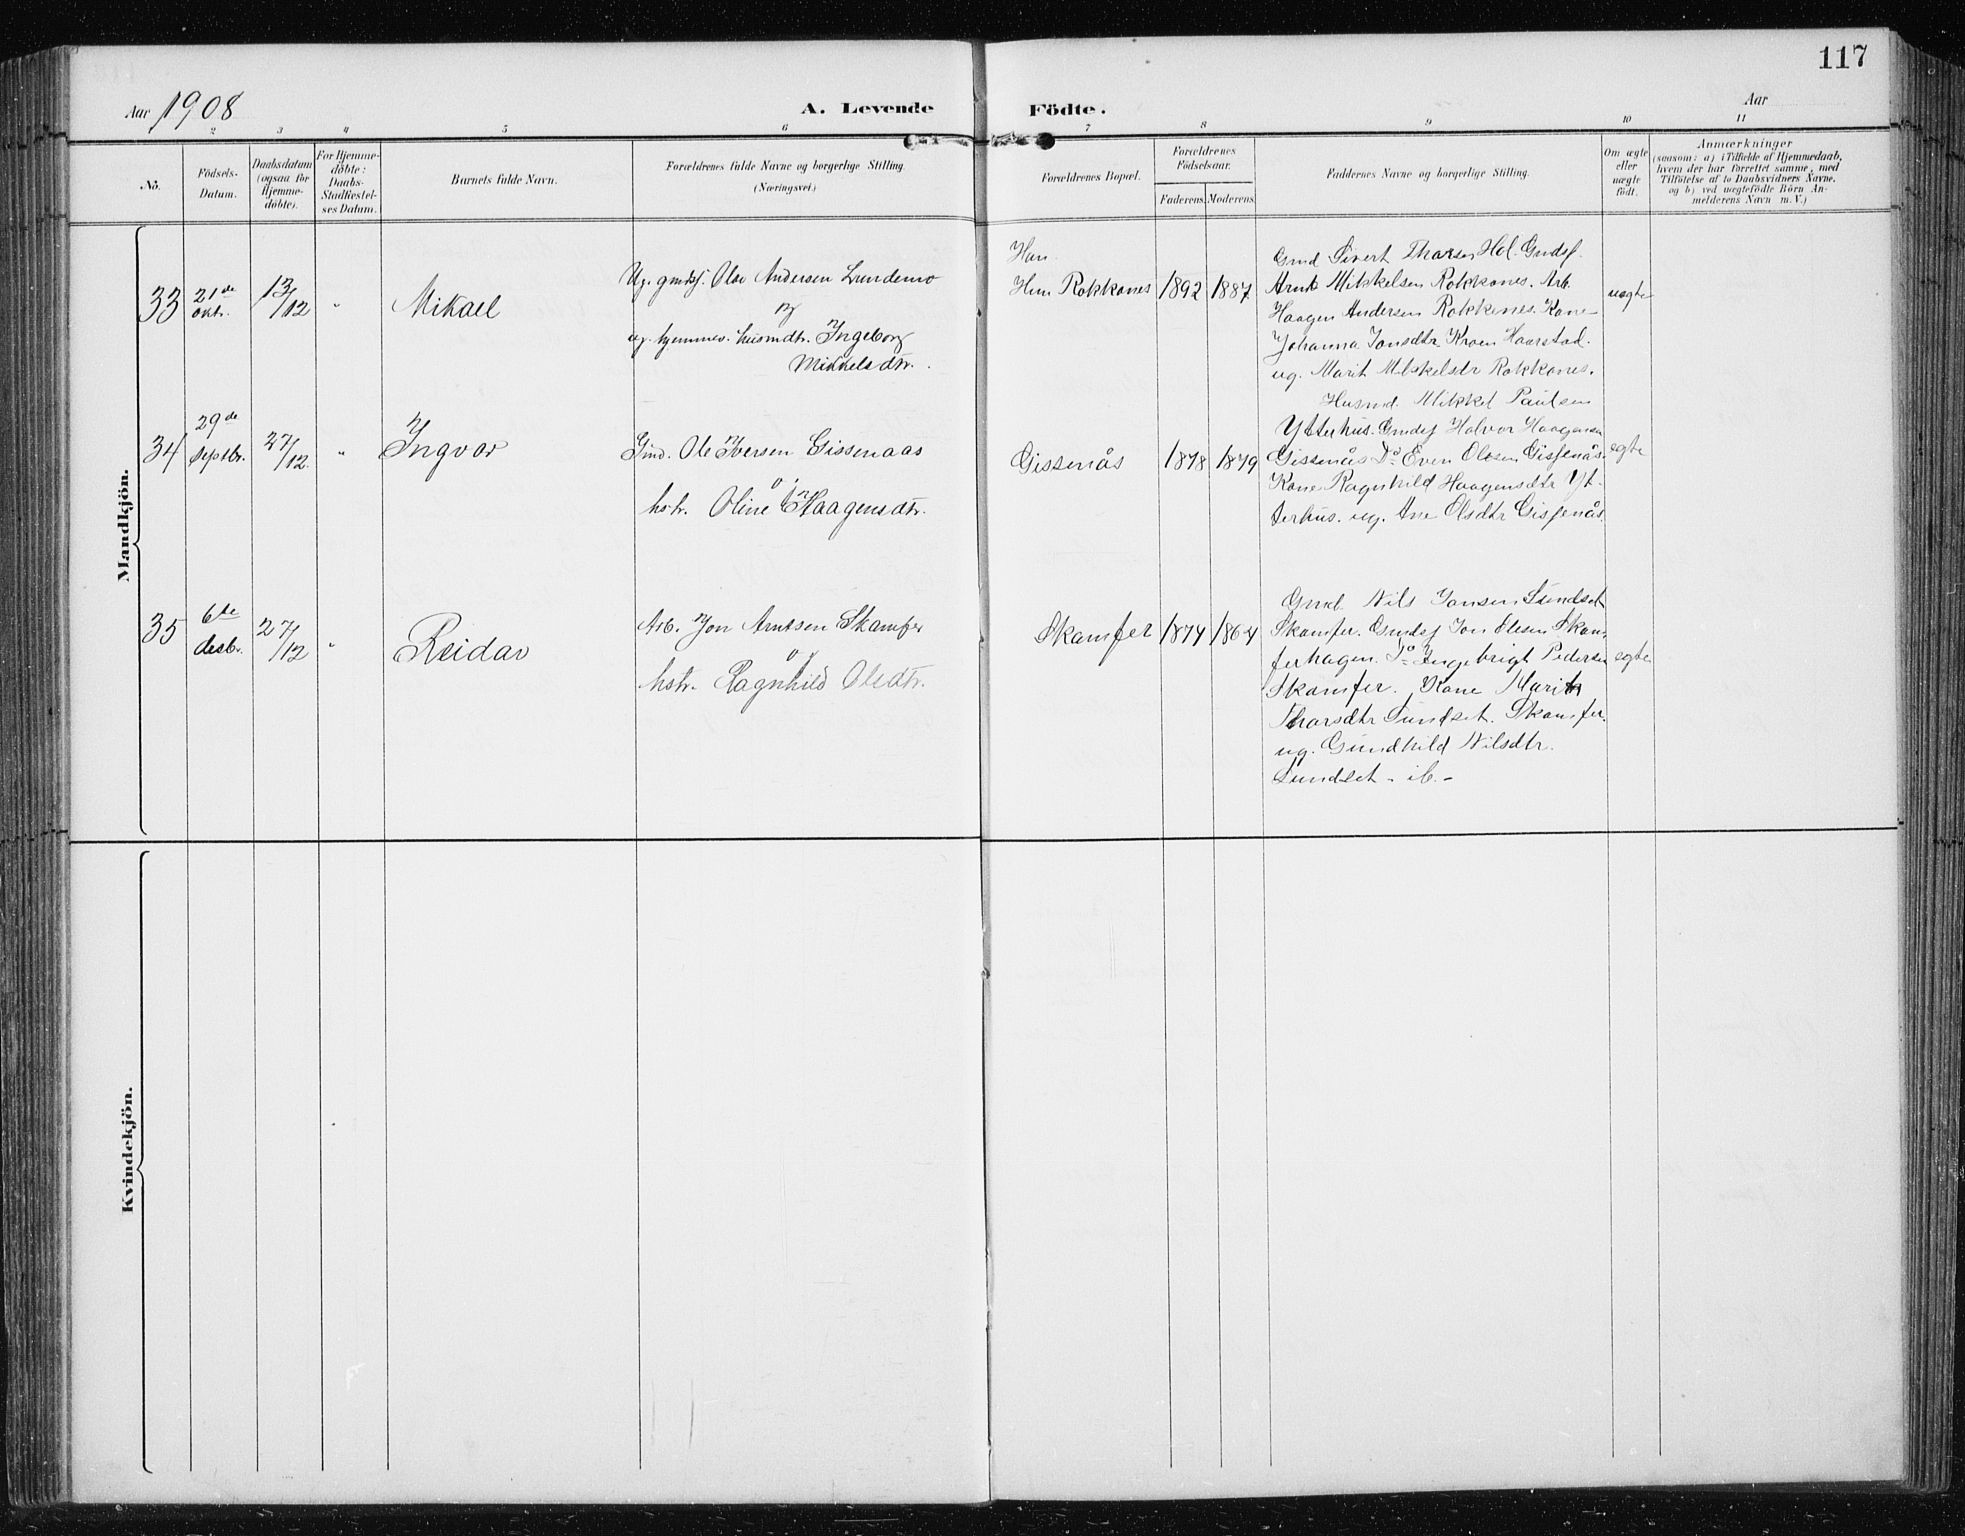 117
Aar 1908
A. Levende Födte.
Aar
2 3 4 5 6 7 8 9 10 11
No.
Födsels-
Datum.
Daabsdatum
(ogsaa for
Hjemme-
döbte).
For Hjemme-
döbte:
Daabs-
Stadfæstel-
ses Datum.
Barnets fulde Navn.
Forældrenes fulde Navne og borgerlige Stilling.
(Næringsvei.)
Forældrenes Bopæl.
Forældrenes
Födselsaar.
Faderens.
Moderens.
Faddernes Navne og borgerlige Stilling.
Om ægte
eller
uægte
födt.
Anmærkninger
(saasom: a) i Tilfælde af Hjemmedaab,
hvem der har forrettet samme, med
Tilföielse af to Daabsvidners Navne.
og b) ved uægtefödte Börn An-
melderens Navn m. V.)
Mandkjön.
33
21de
oktr.
13/12
"
Mikael
Ug. gmdsf. Olav Andersen Lundemo
og
ug. hjemmev. husmdtr. Ingeborg
Mikkelsdtr.
Han
Hun Rokkones
1892
1887
Gmd Sivert Tharsen Hol. Gmdsf.
Arnt Mikkelsen Rokkones. Arb.
Haagen Andersen Rokkones. Kone
Johanna Jonsdtr Kroen Haarstad.
ug. Marit Mikkelsdtr Rokkones.
uægte
34
29de
Septbr.
27/12.
"
Ingvar
Gmd. Ole Iversen Gissenaas
og
hstr. Oline Haagensdtr.
Gissenås
1878
1879
Husmd. Mikkel Paulsen
Ytterhus. Gmdsf Halvor Haagensen
Gissenås Do Even Olsen Gissenås.
Kone Ragnhild Haagensdtr Yt-
terhus. ug. Ane Olsdtr Gissenås
egte
35
6te
desb.
27/12
"
Reidar
Arb. Jon Arntsen Skamfer
og
hstr. Ragnhild Olsdtr.
Skamfer
1874
1864
Gmd. Nils Jonsen Sundset
Skamfer. Gmdsf Jon Olsen Skam-
ferhagen. Do Ingebrigt Pedersen
Skamfer. Kone Marit
Tharsdtr Sundset. Skamfer.
ug. Gundhild Nilsdtr.
Sundset - ib. -
egte
Kvindekjön.